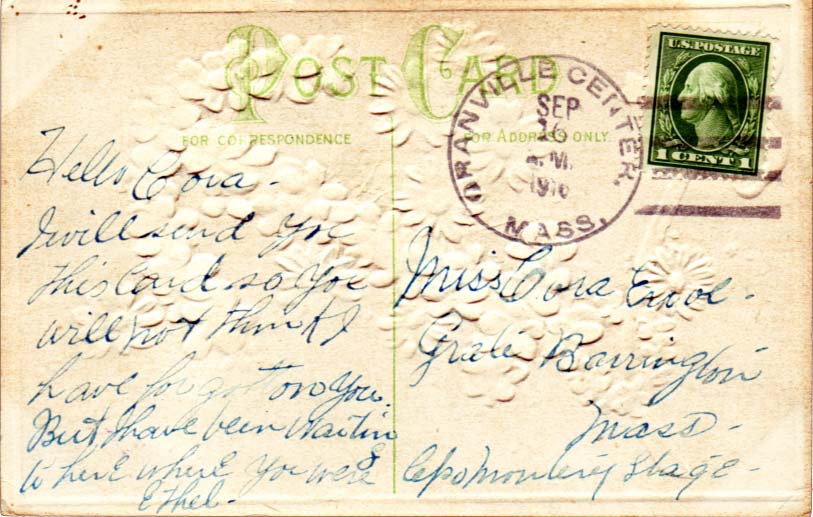 POST CARD
FOR CORRESPONDENCE
FOR ADDRESS ONLY
GRANVILLE CENTER,
MASS.
SEP
1916
U.S. POSTAGE
1 CENT 1
Hello Cora -
I will send you
this Card so you
will not think I
have forgotton you.
But I have been waiting
to here where you were
Ethel -
Miss Cora
Grate Barrington
Mass -
Monterey Stage -